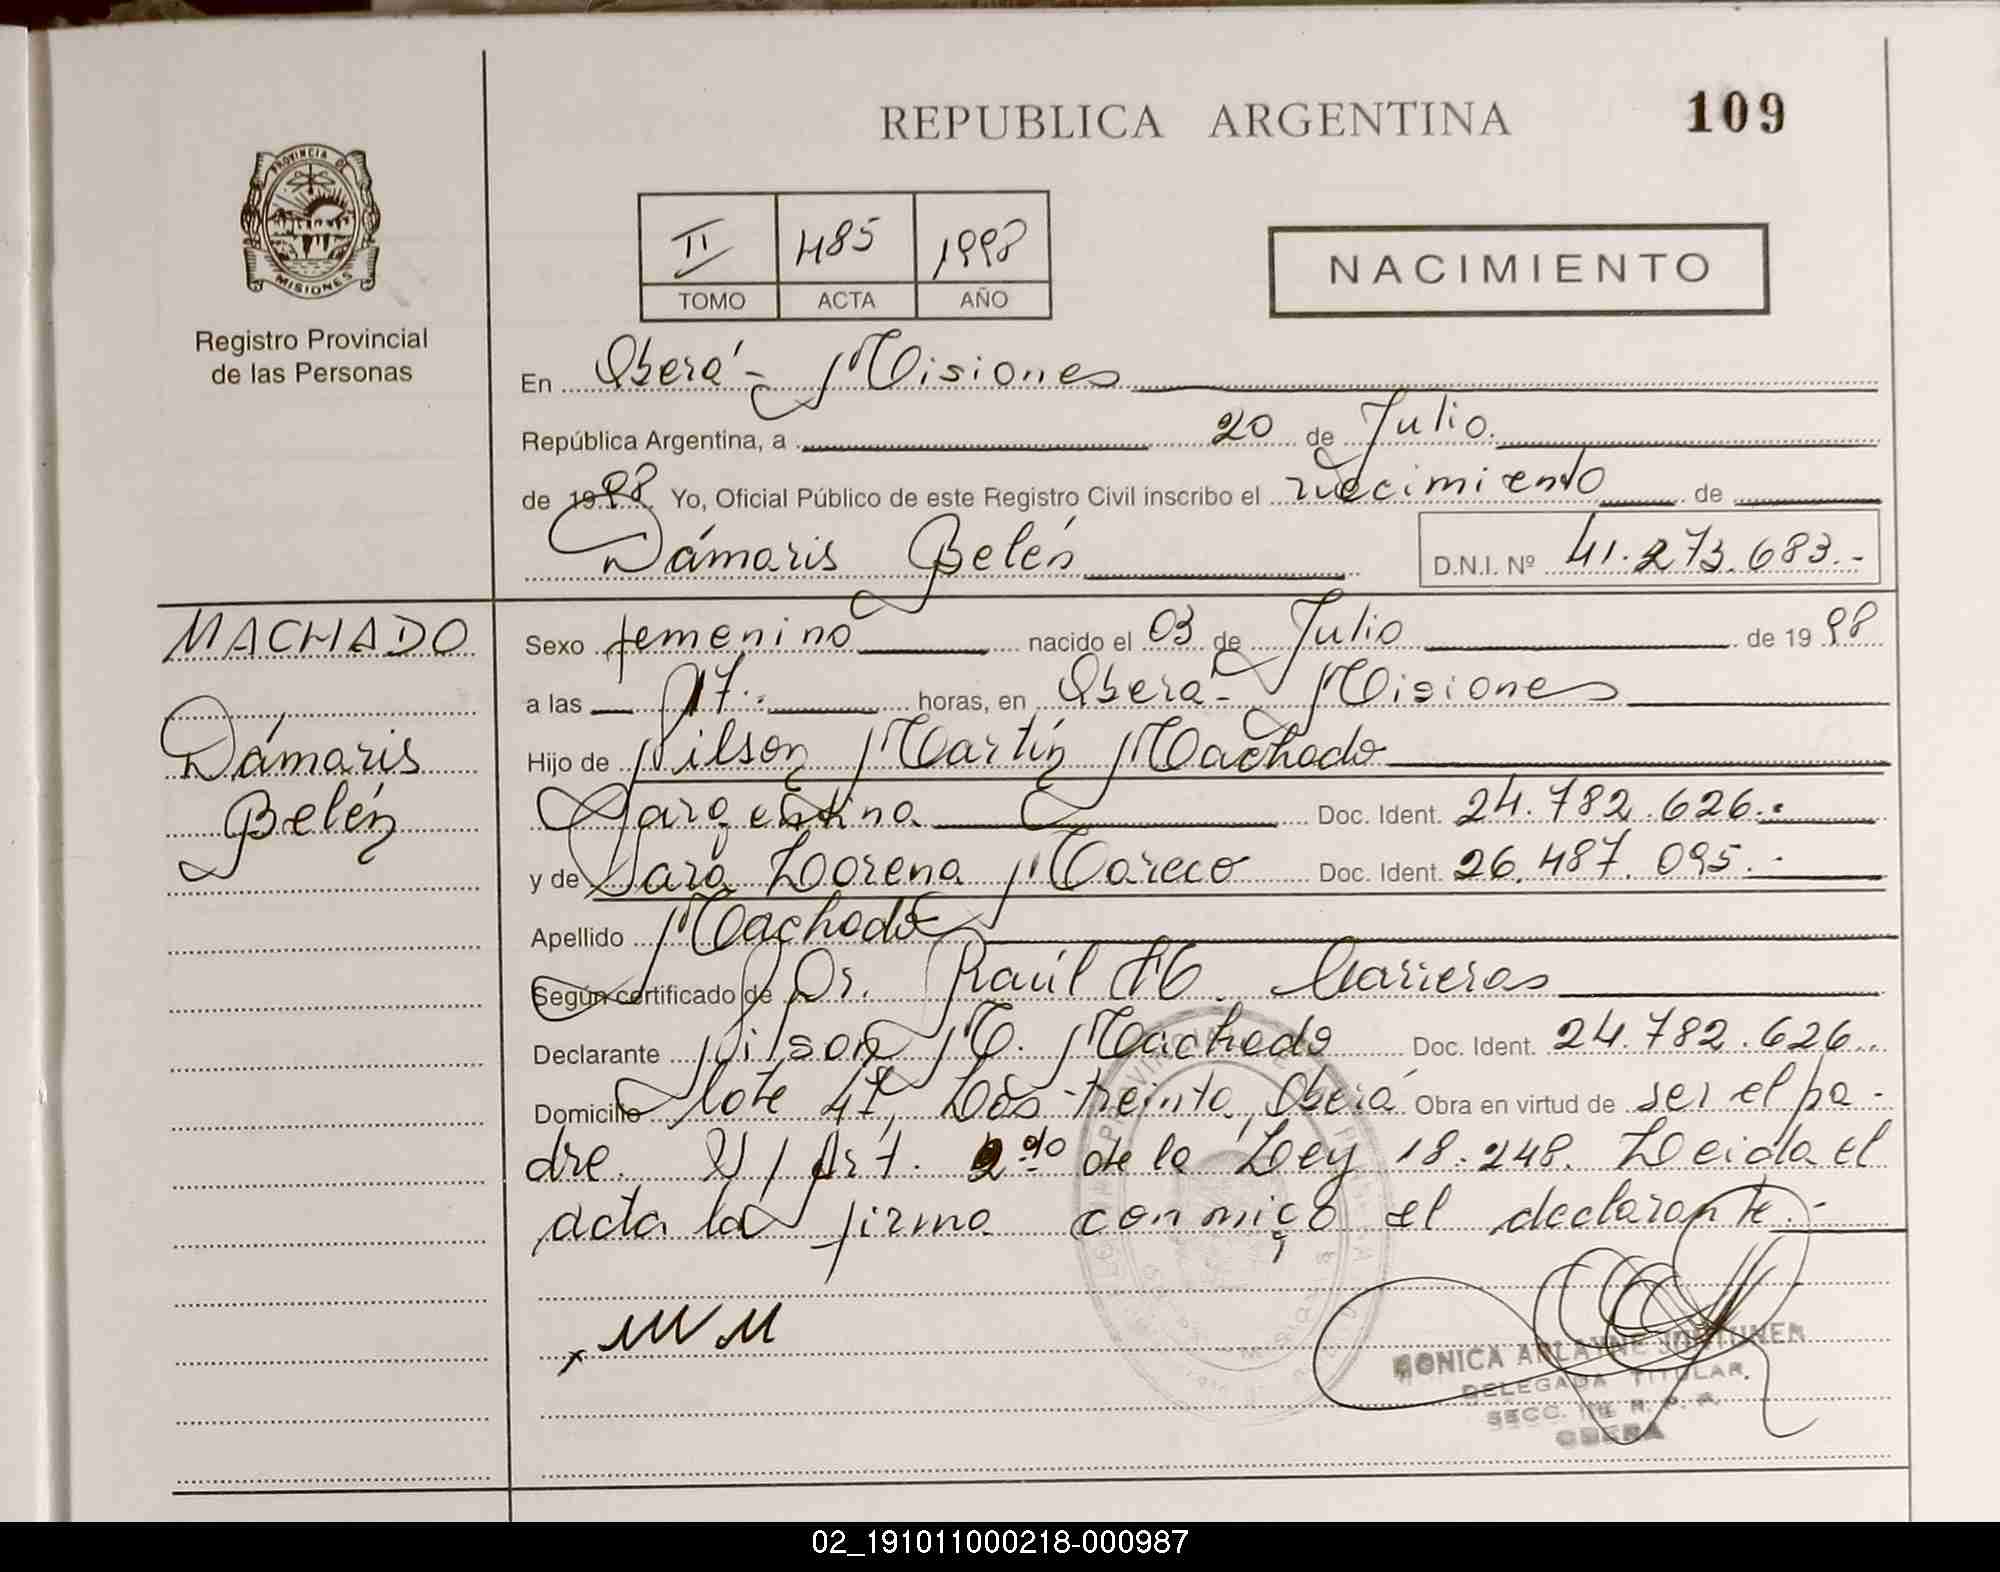 REPUBLICA ARGENTINA
109
PROVINCIA DE
MISIONES
Registro Provincial
de las Personas
II 485 1998
TOMO ACTA AÑO
NACIMIENTO
En Oberá - Misiones
República Argentina, a 20 de Julio.
de 1998 Yo, Oficial Público de este Registro Civil inscribo el nacimiento de
Dámaris Belén D.N.I. Nº 41.273.683.-
MACHADO
Dámaris
Belén
Sexo femenino nacido el 03 de Julio de 1998
a las 17. horas, en Oberá - Misiones
Hijo de Nilson Martín Machado
Argentina Doc. Ident. 24.782.626.-
y de Sara Lorena Mareco Doc. Ident. 26.487.095.-
Apellido Machado
Según certificado de Dr. Raúl H. Carieras
Declarante Nilson M. Machado Doc. Ident. 24.782.626.
Domicilio lote 47, Dos treinta, Oberá Obra en virtud de ser el pa-
dre. Art. 2do de la Ley 18.248. Leida el
acta la firma conmigo el declarante.-
MONICA ARLAYNE
DELEGADA TITULAR.
SECC. R. P. P.
OBERA
02_191011000218-000987